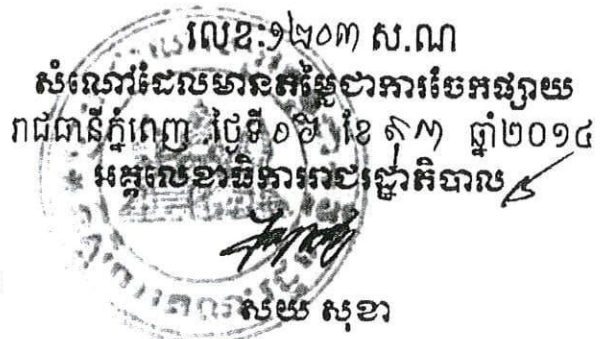 លេខៈ១២០៣ ស.ណ
សំណៅដែលមានតម្លៃជាការចែកផ្សាយ
រាជធានីភ្នំពេញ ថ្ងៃទី ០៦ ខែ ឆ្នាំ២០១៤
អគ្គលេខាធិការរាជរដ្ឋាភិបាល
សយ សុខា